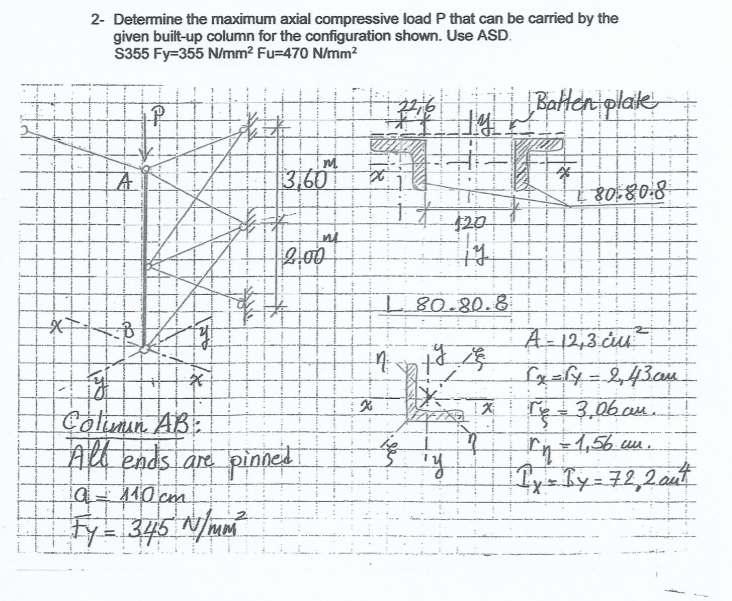 2- Determine the maximum axial compressive load P that can be carried by the
given built-up column for the configuration shown. Use ASD.
S355 Fy=355 N/mm² Fu=470 N/mm²
P
A
3,60 m
2.00 m
x
B
y
y
x
Column AB:
All ends are pinned
a = 110 cm
Fy = 345 N/mm²
22,6
y
Batten plate
x
x
L 80.80.8
120
y
L 80.80.8
η
y
ξ
x
x
ξ
y
η
A = 12,3 cm²
rx = ry = 2,43 cm
rξ = 3,06 cm.
rη = 1,56 cm.
Ix = Iy = 72,2 cm⁴